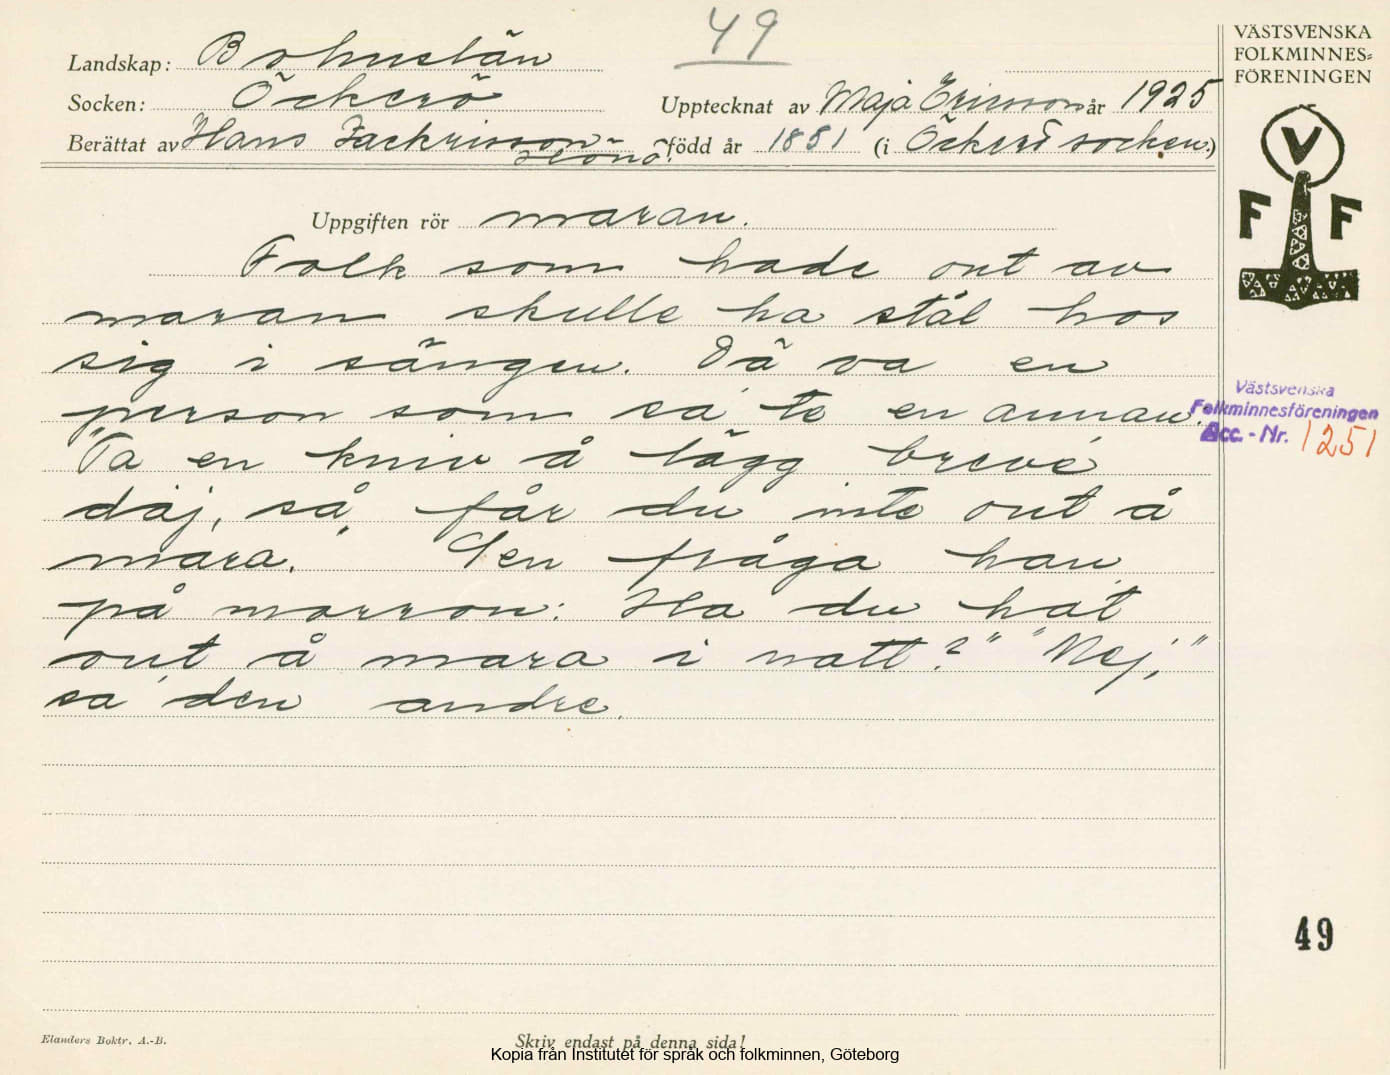 49
Landskap: Bohuslän
Socken: Öckerö
Upptecknat av Maja Ericsson år 1925
Berättat av Hans Zackrisson Hönö. född år 1881 (i Öckerö socken.)
VÄSTSVENSKA
FOLKMINNES=
FÖRENINGEN
V
F F
Uppgiften rör maran.
Folk som hade ont av
maran skulle ha stål hos
sig i sängen. Dä va en
person som sa' te en annan.
"Ta en kniv å lägg breve'
däj, så får du inte ont å
mara." Sen fråga han
på morron: Ha du hat
ont å mara i natt?" "Nej,"
sa' den andre.
Västsvenska
Folkminnesföreningen
Acc.-Nr. 1251
49
Elanders Boktr. A.-B.
Skriv endast på denna sida!
Kopia från Institutet för språk och folkminnen, Göteborg